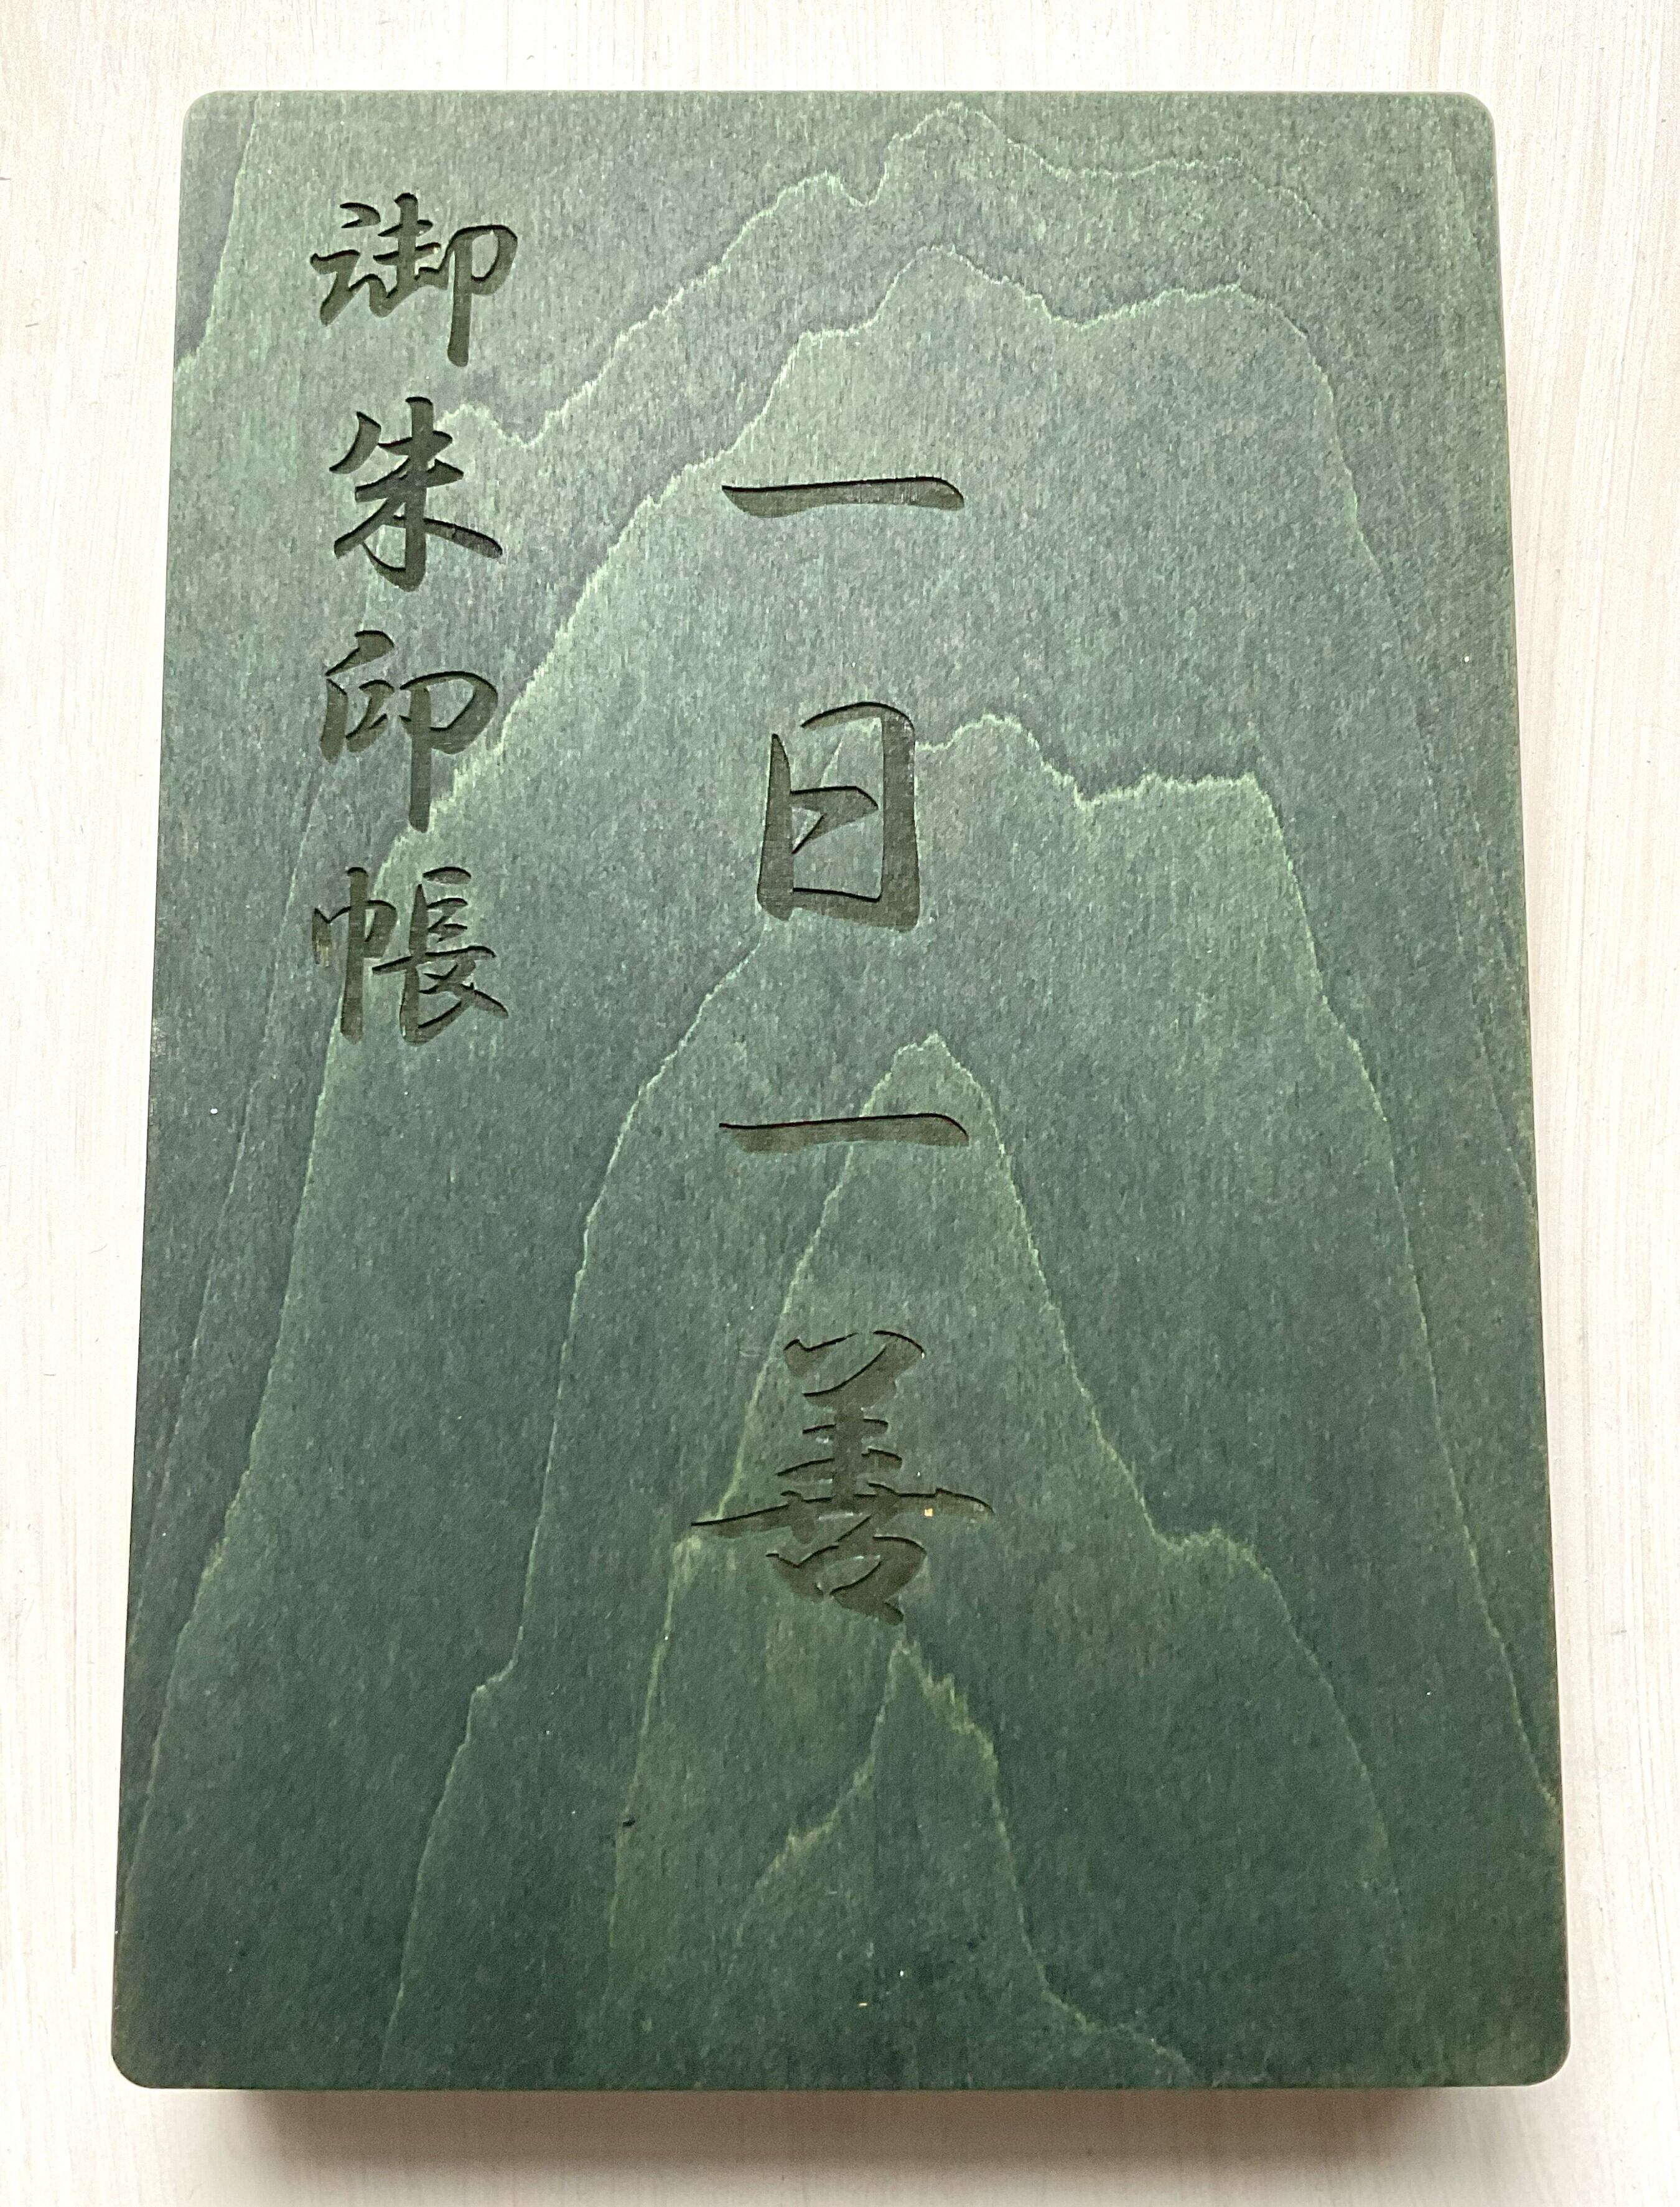 一日一善
御朱印帳